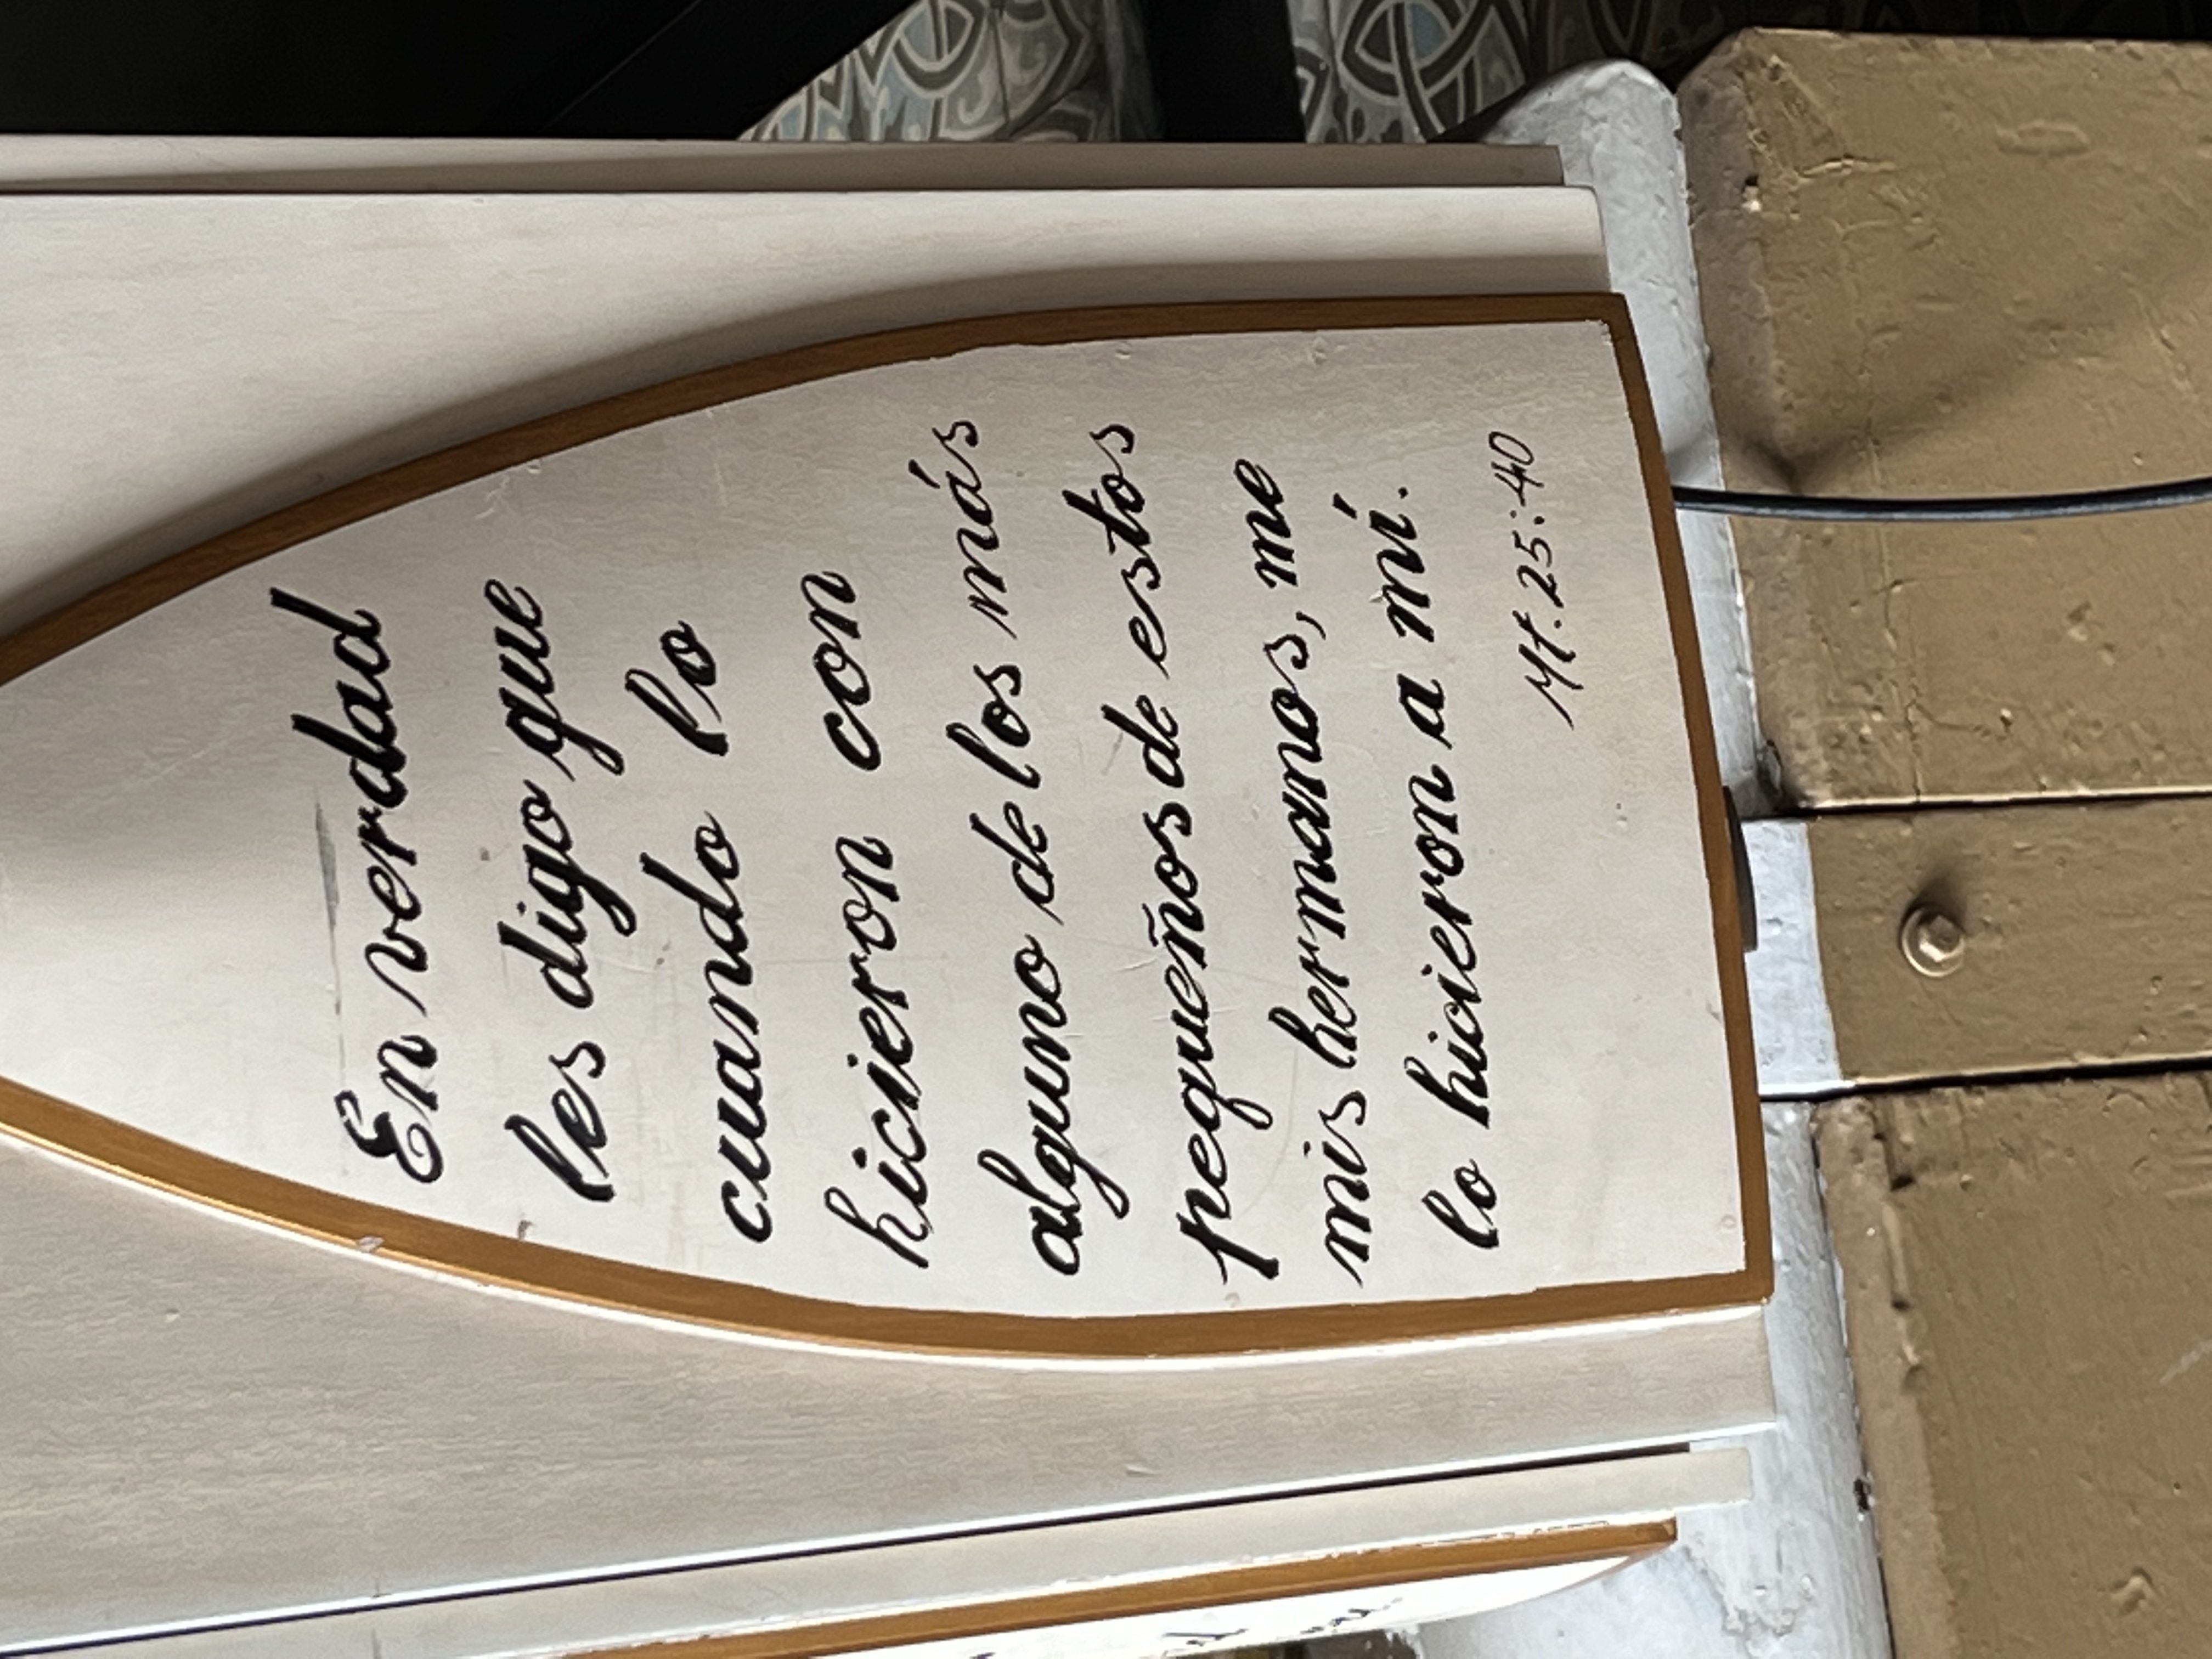 En verdad
les digo que
cuando lo
hicieron con
alguno de los más
pequeños de estos
mis hermanos, me
lo hicieron a mí.
Mt. 25:40